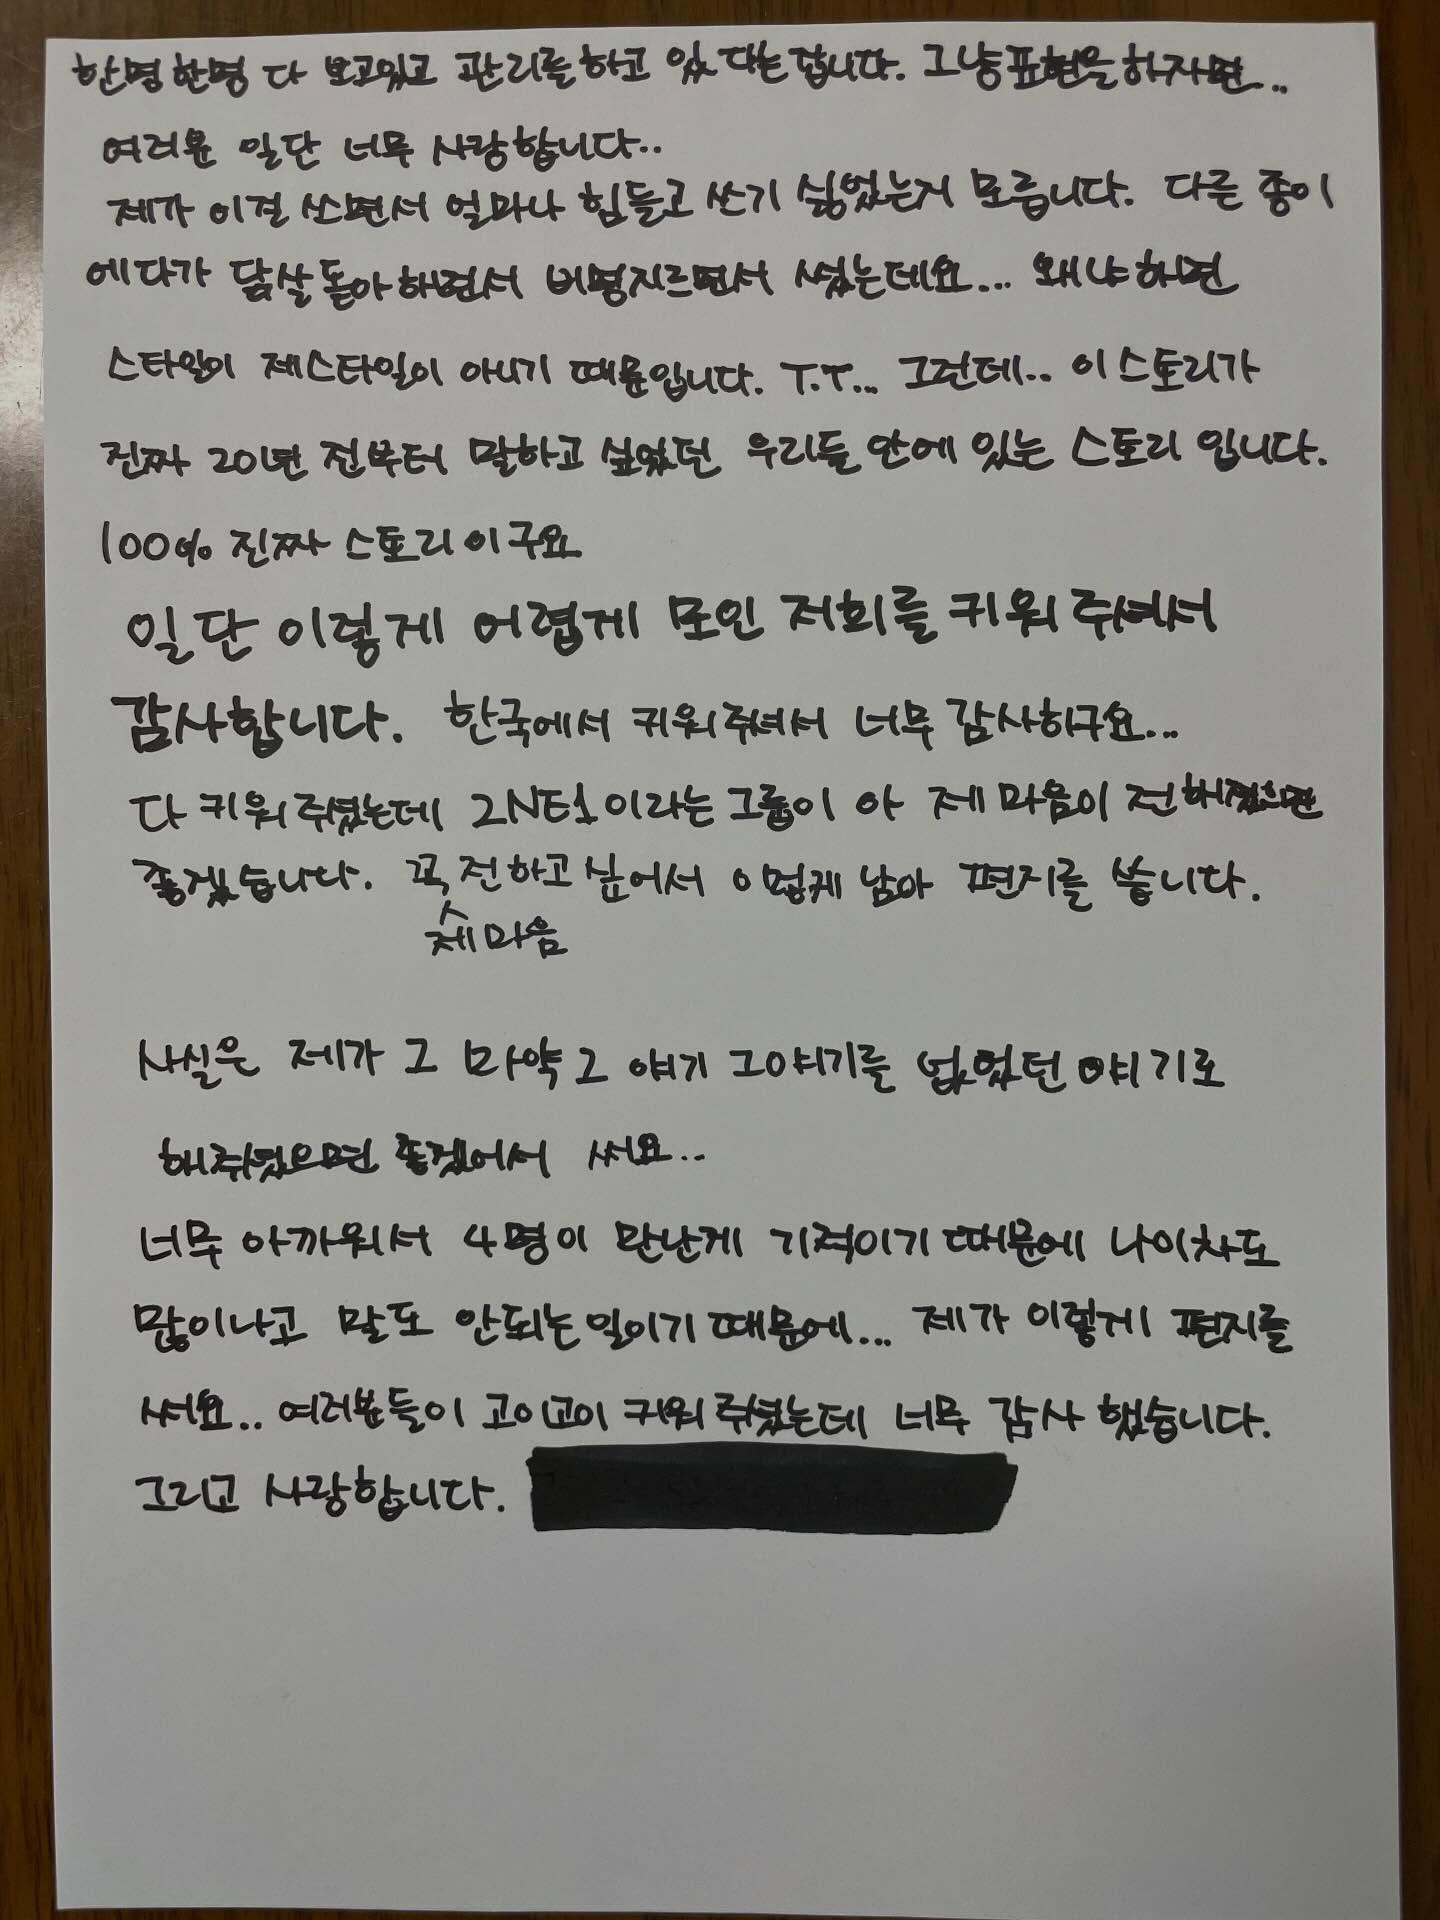 한명한명 다 보고있고 관리를하고 있다는겁니다. 그냥표현을하자면...
여러분 일단 너무 사랑합니다..
제가 이걸 쓰면서 얼마나 힘들고 쓰기 싫었는지 모릅니다. 다른 종이
에다가 닭살돋아하면서 비명지르면서 썼는데요... 왜냐하면
스타일이 제스타일이 아니기 때문입니다. T.T... 그런데.. 이스토리가
진짜 20년 전부터 말하고 싶었던 우리들 안에 있는 스토리 입니다.
100% 진짜 스토리이구요
일단 이렇게 어렵게 모인 저희를 키워주셔서
감사합니다. 한국에서 키워주셔서 너무 감사하구요...
다 키워주셨는데 2NE1이라는그룹이 아 제 마음이 전해졌으면
좋겠습니다. 꼭 전하고싶어서 이렇게 남아 편지를 씁니다.
제마음
사실은 제가 그 마약그 얘기 그얘기를 없었던 얘기로
해주셨으면 좋겠어서 써요..
너무 아까워서 4명이 만난게 기적이기때문에 나이차도
많이나고 말도 안되는일이기때문에... 제가 이렇게 편지를
써요.. 여러분들이 고이고이 키워주셨는데 너무 감사 했습니다.
그리고 사랑합니다.